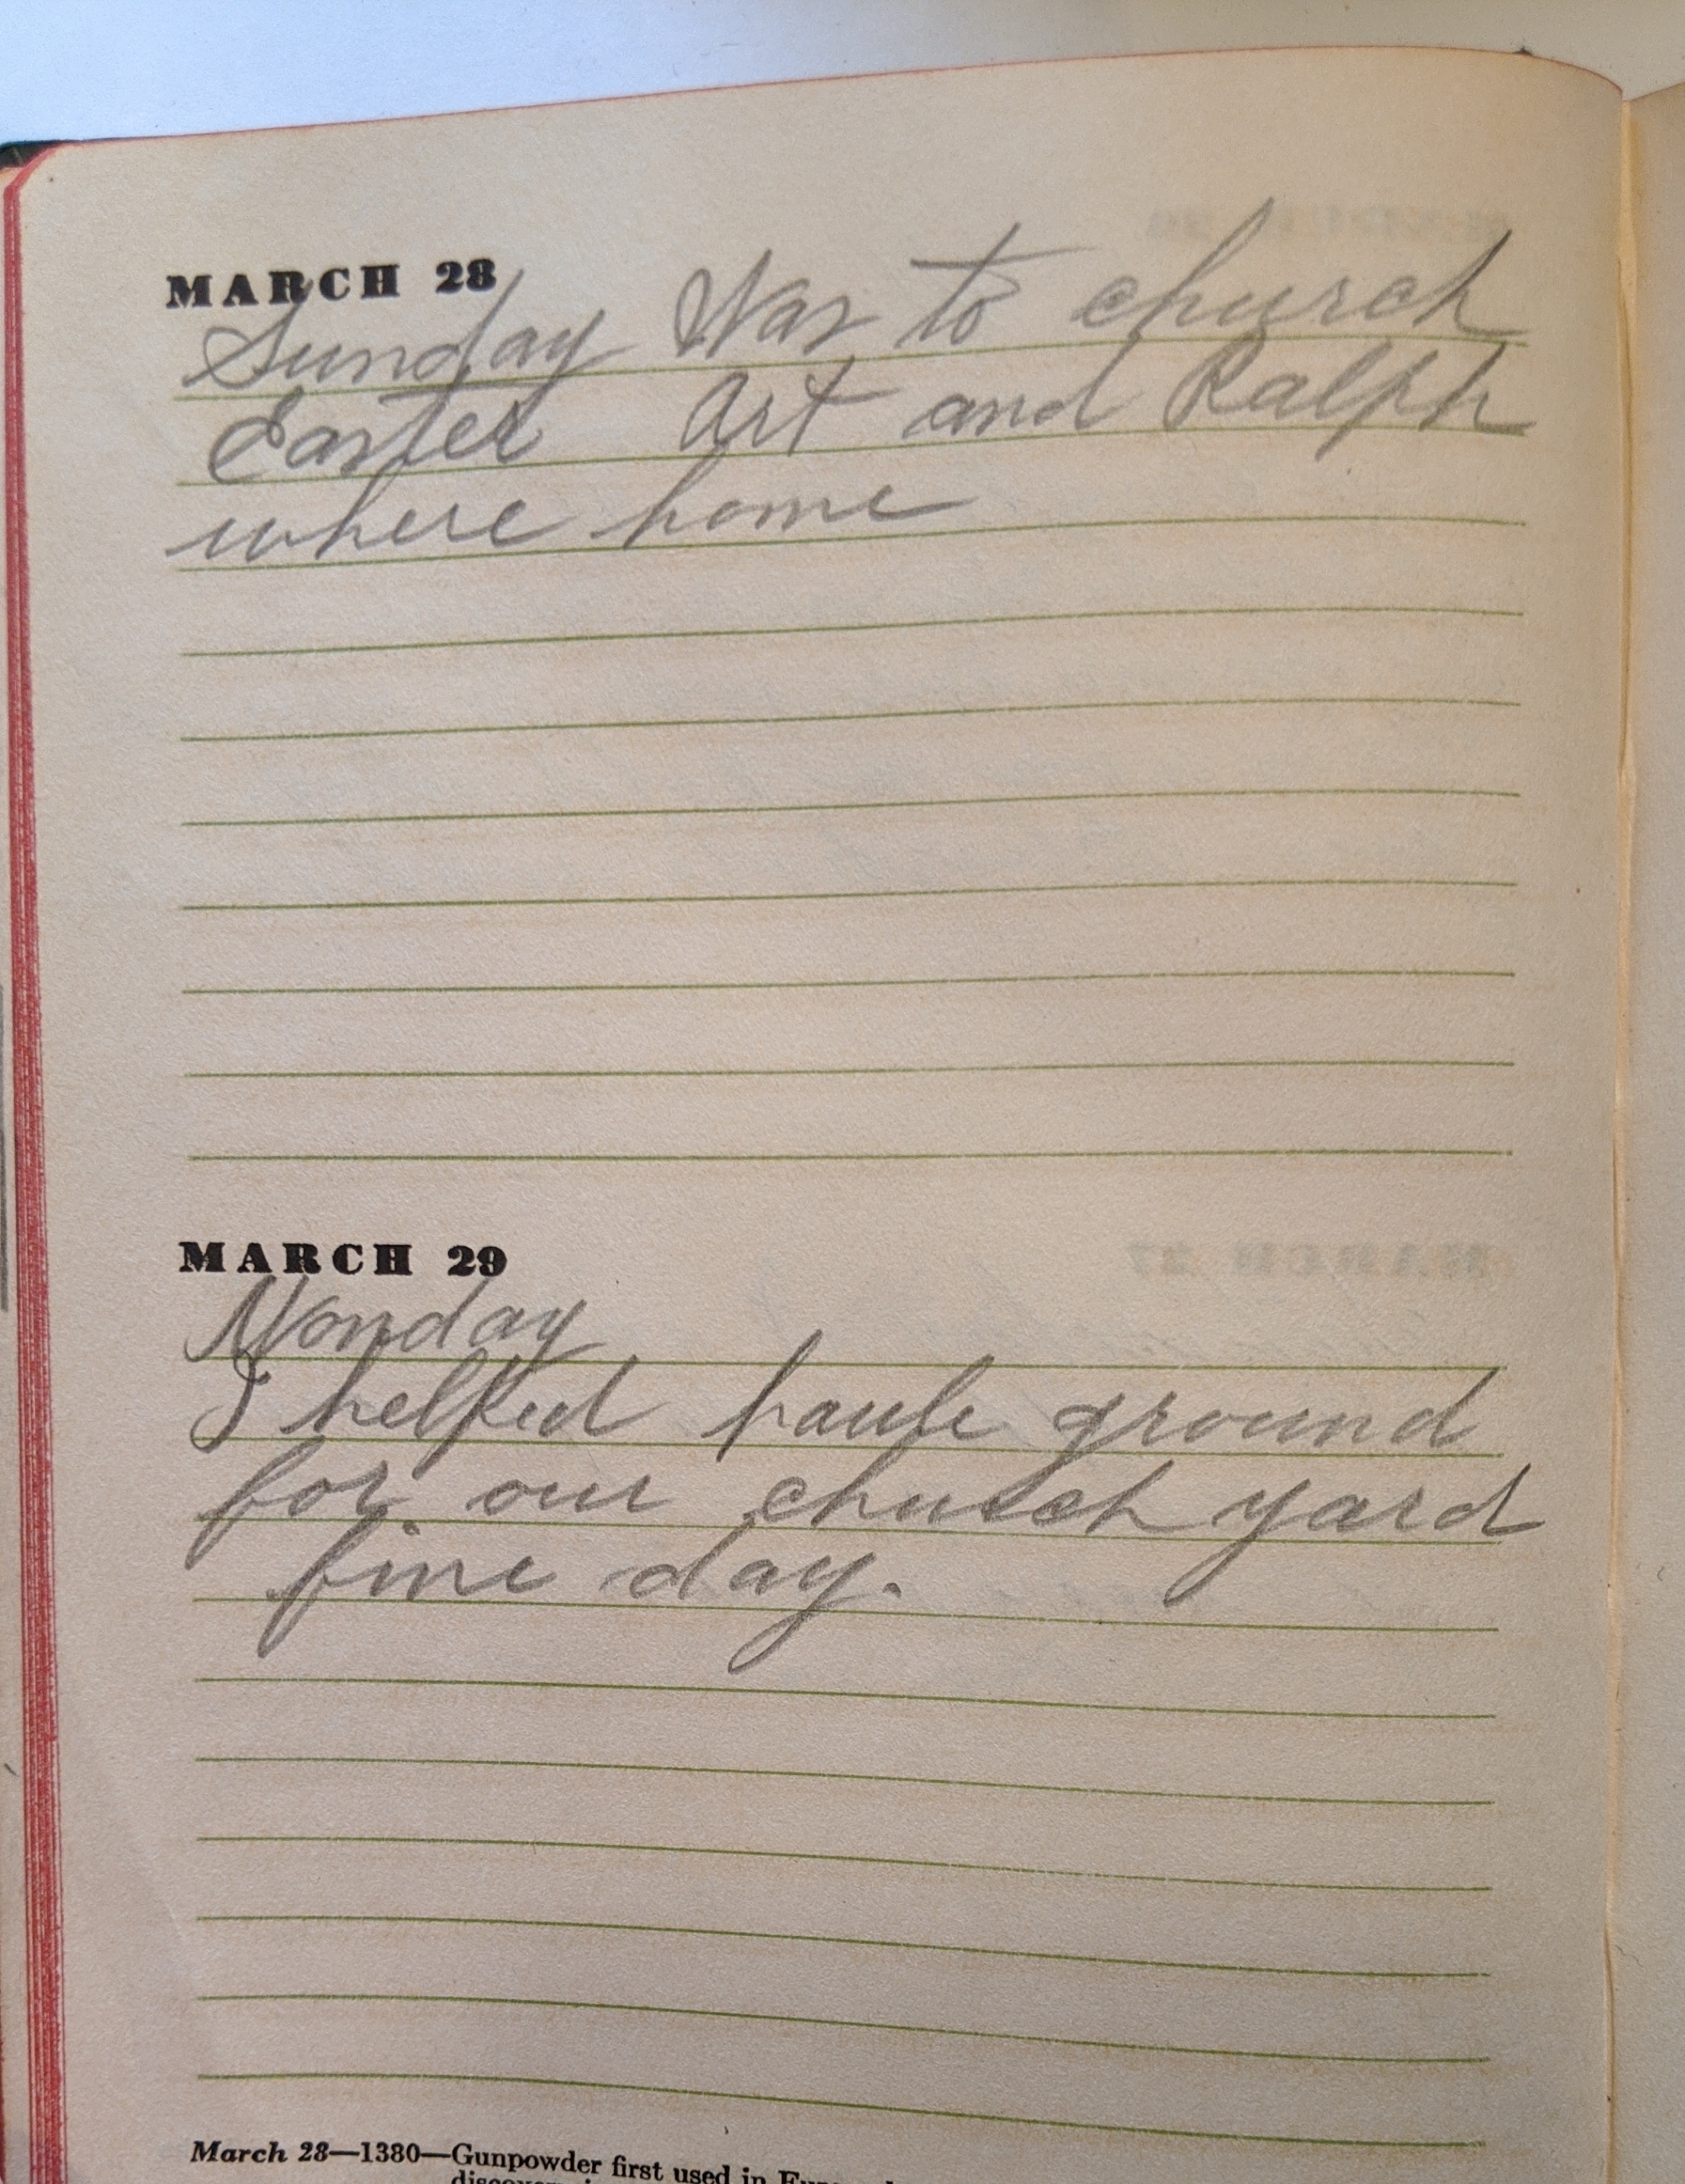 MARCH 28
Sunday Was to church
Easter Art and Ralph
where home
MARCH 29
Monday
I helped haule ground
for our church yard
fine day.
March 28—1380—Gunpowder first used in